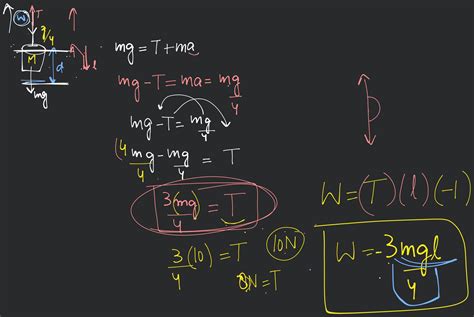 W T
g/4
M d l
mg
mg = T + ma
mg - T = ma = mg/4
mg - T = mg/4
(4 mg/4 - mg/4 = T
3(mg)/4 = T
3/4 (10) = T 10N
N = T
W = (T)(l)(-1)
W = -3mgl/4